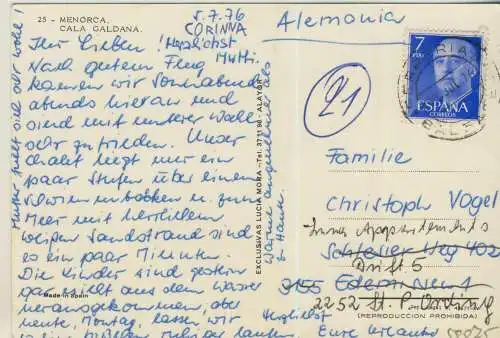 25 - MENORCA.
CALA GALDANA.
5.7.76
CORINNA
Ihr Lieben! Herzlichst
Mutti
Nach gutem Flug
kamen wir Sonnabend
abends hier an und
sind mit unserer Wahl
sehr zufrieden. Unser
Chalet liegt nur ein
paar Stufen über einem
Swimmbecken u. zum
Meer mit herrlichem
weißen Sandstrand sind
es ein paar Minuten.
Die Kinder sind gestern
gar nicht aus dem Wasser
herausgekommen, aber
heute, Montag, lassen wir
es ein bißchen ruhiger laufen.
Herzlichst Eure Urlauber
Mutter fühlt sich sehr wohl!
Wärme angenehmer als
zu Hause.
Made in Spain
EXCLUSIVAS LUCIA MORA - Tel. 371196 - ALAYOR
Alemania
21
7
PTAS
ESPAÑA
CORREOS
BALEARES
Familie
Christoph Vogel
Immo Appartements
Schleier Weg 402
Drift 5
2252 St. P. Ording
(REPRODUCCION PROHIBIDA)